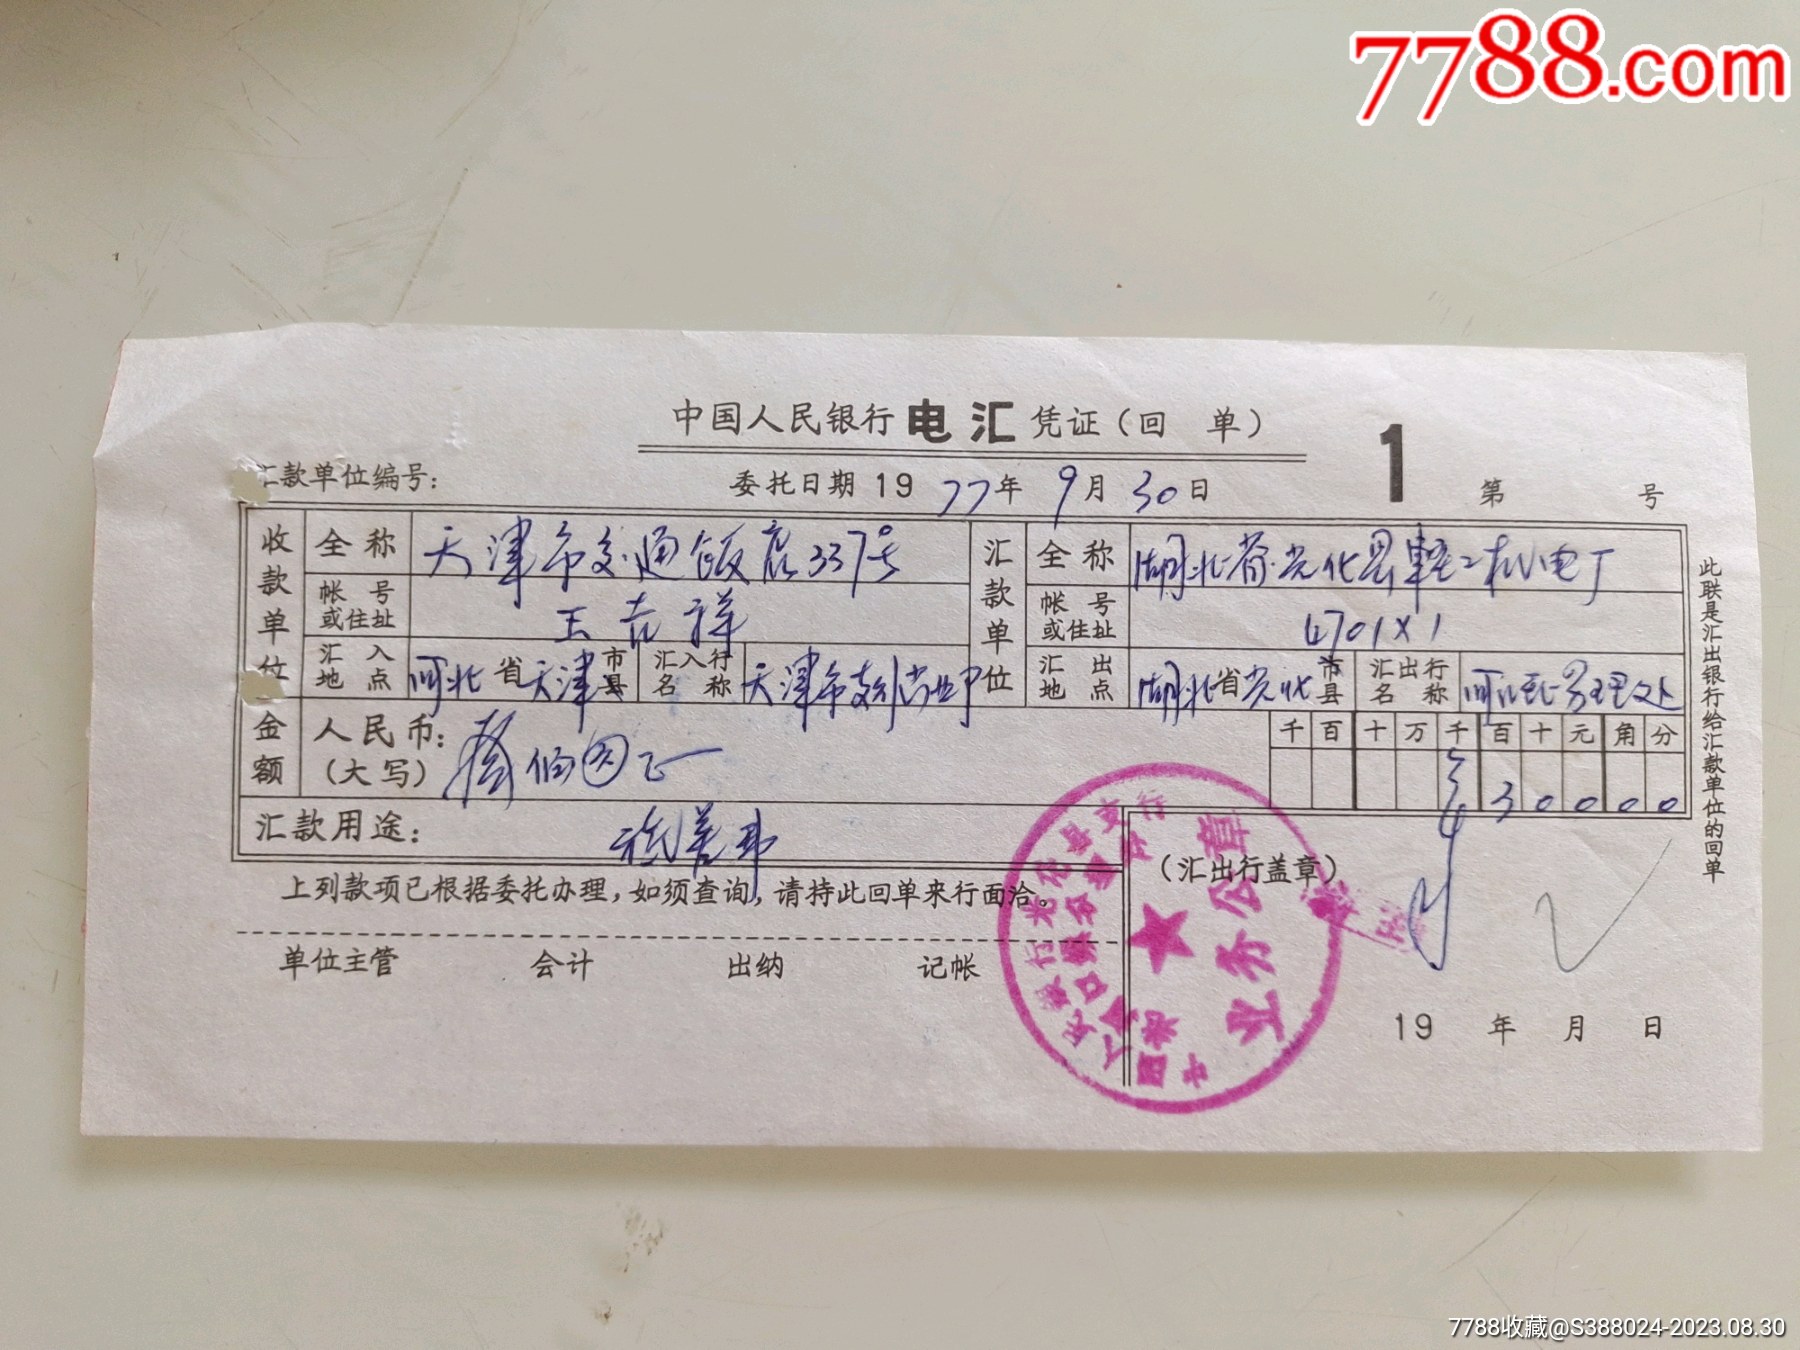 7788.com
中国人民银行电汇凭证(回 单)
1
第 号
汇款单位编号:
委托日期 1977年9月30日
收款单位
全称 天津市交通饭店337号
帐号或住址 王吉祥
汇入地点 河北省天津市县
汇入行名称 天津市支行营业
汇款单位
全称 湖北省光化县轻工机电厂
帐号或住址 4701X1
汇出地点 湖北省光化市县
汇出行名称 管理处
金额
人民币:(大写) 叁佰圆正
千百十万千百十元角分
30000
汇款用途:
(汇出行盖章)
上列款项已根据委托办理,如须查询,请持此回单来行面洽。
单位主管 会计 出纳 记帐
19 年 月 日
此联是汇出银行给汇款单位的回单
中国人民银行光化县支行
业务公章
7788收藏@S388024-2023.08.30